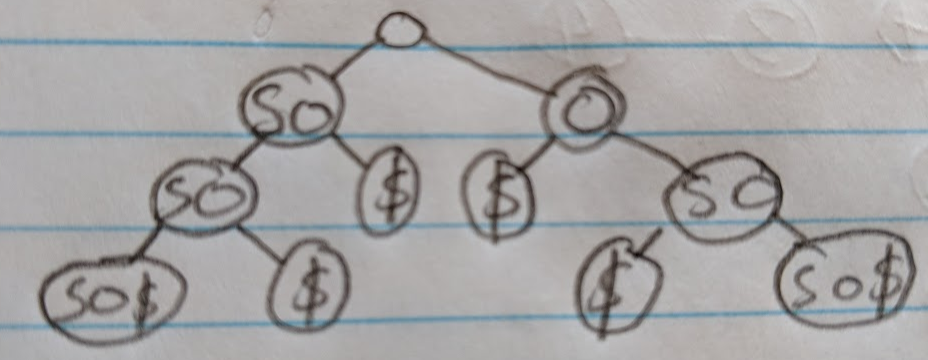 So O
SO $ $ SO
SO$ $ $ SO$